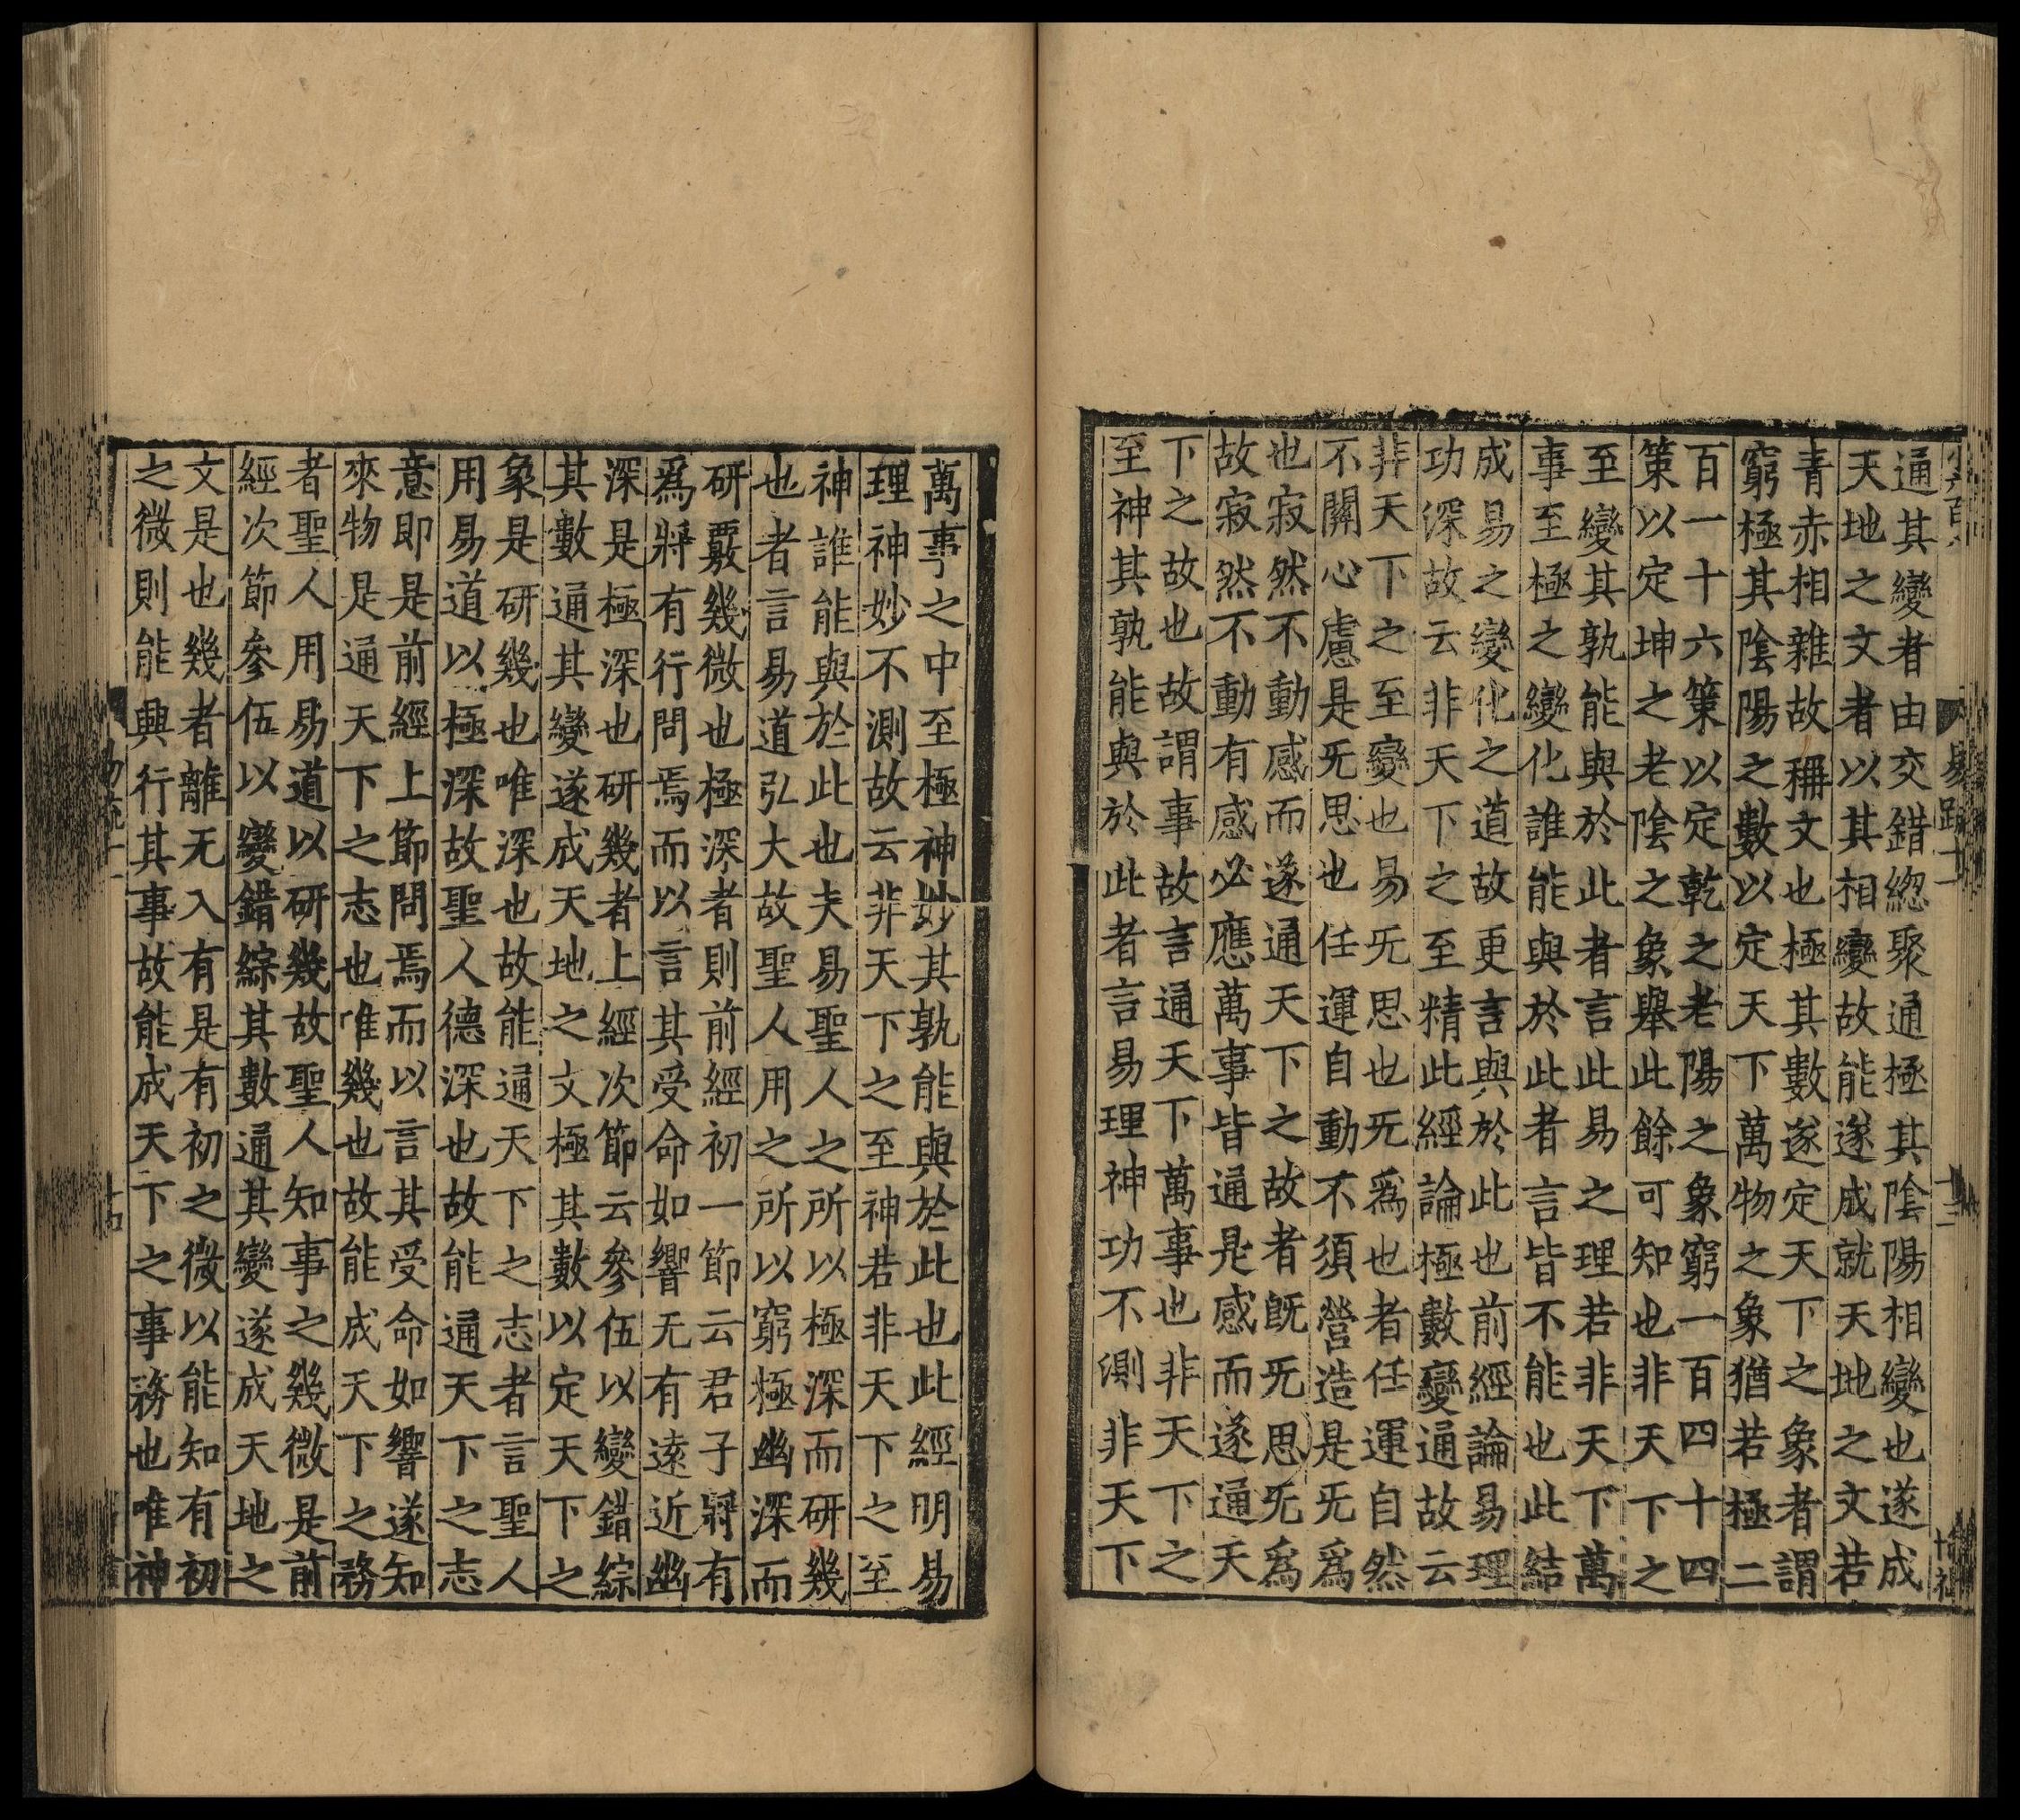 通其變者由交錯緫聚通極其陰陽相變也遂成
天地之文者以其相變故能遂成就天地之文若
青赤相雜故稱文也極其數遂定天下之象者謂
窮極其陰陽之數以定天下萬物之象猶若極二
百一十六策以定乾之老陽之象窮一百四十四
策以定坤之老陰之象舉此餘可知也非天下之
至變其孰能與於此者言此易之理若非天下萬
事至極之變化誰能與於此者言皆不能也此結
成易之變化之道故更言與於此也前經論易理
功深故云非天下之至精此經論極數變通故云
非天下之至變也易旡思也旡爲也者任運自然
不關心慮是旡思也任運自動不須營造是旡爲
也寂然不動感而遂通天下之故者旣旡思旡爲
故寂然不動有感必應萬事皆通是感而遂通天
下之故也故謂事故言通天下萬事也非天下之
至神其孰能與於此者言易理神功不測非天下
萬事之中至極神妙其孰能與於此也此經明易
理神妙不測故云非天下之至神若非天下之至
神誰能與於此也夫易聖人之所以極深而研幾
也者言易道弘大故聖人用之所以窮極幽深而
研覈幾微也極深者則前經初一節云君子將有
爲將有行問焉而以言其受命如響无有遠近幽
深是極深也研幾者上經次節云參伍以變錯綜
其數通其變遂成天地之文極其數以定天下之
象是研幾也唯深也故能通天下之志者言聖人
用易道以極深故聖人德深也故能通天下之志
意即是前經上節問焉而以言其受命如響遂知
來物是通天下之志也唯幾也故能成天下之務
者聖人用易道以研幾故聖人知事之幾微是前
經次節參伍以變錯綜其數通其變遂成天地之
文是也幾者離无入有是有初之微以能知有初
之微則能興行其事故能成天下之事務也唯神